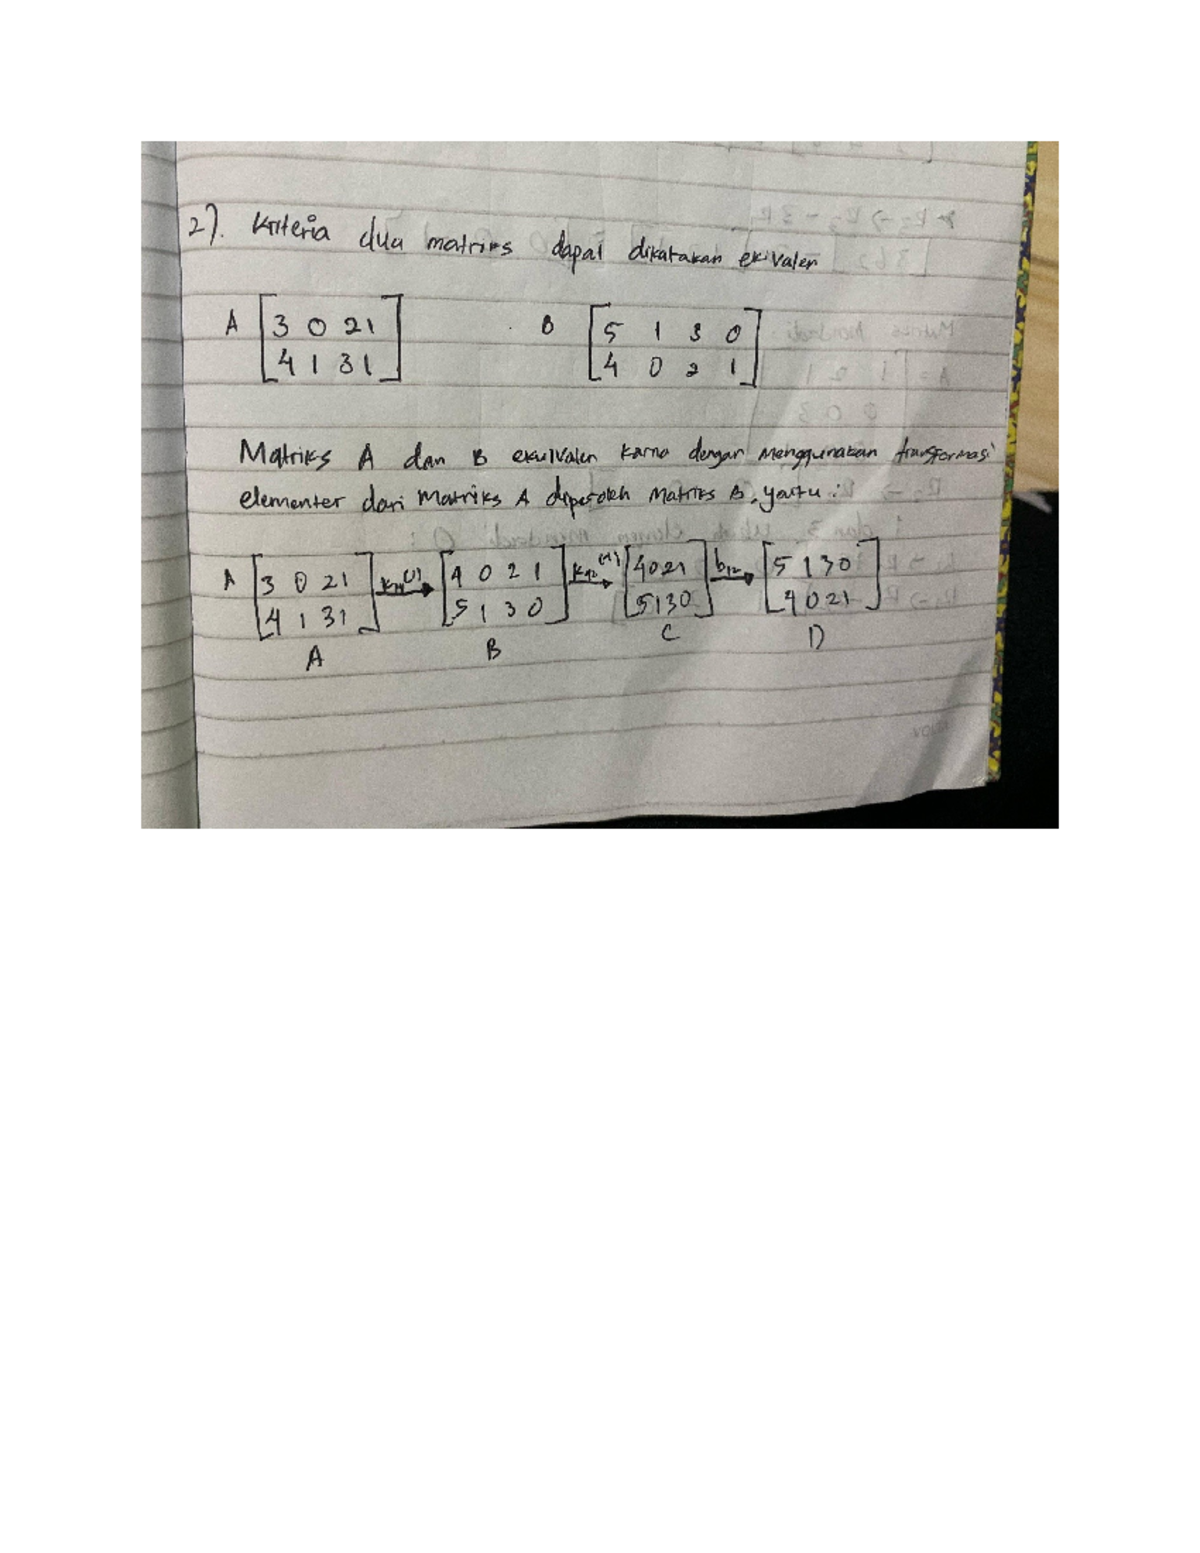 2). Kriteria dua matriks dapat dikatakan ekivalen
A [3 0 2 1 B [5 1 3 0
4 1 3 1] 4 0 2 1]
Matriks A dan B ekuivalen karna dengan menggunakan transformasi
elementer dari matriks A diperoleh matriks B, yaitu:
A [3 0 2 1 [4 0 2 1 [4 0 2 1 b12 [5 1 3 0
4 1 3 1] 5 1 3 0] 5 1 3 0] 4 0 2 1]
A B C D